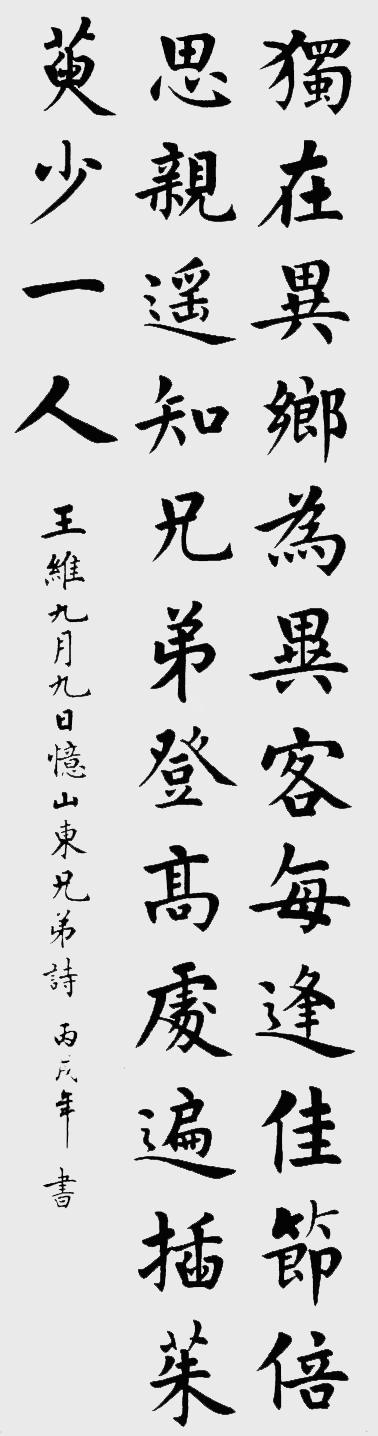 獨在異鄉為異客每逢佳節倍
思親遥知兄弟登高處遍插茱
萸少一人
王維九月九日憶山東兄弟詩 丙戌年 書